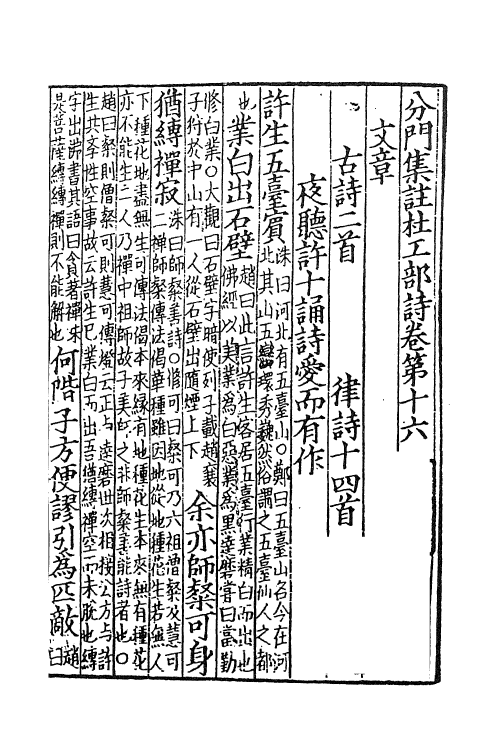 分門集註杜工部詩卷第十六
文章
古詩二首　律詩十四首
夜聽許十誦詩愛而有作
許生五臺賓洙曰河北有五臺山○鄭曰五臺山名今在河
北其山五巒環秀巍然俗謂之五臺仙人之都
也業白出石壁趙曰此言許生客居五臺行業精白而出也
佛經以美業為白惡業為黑達磨嘗曰當勤
修白業○大觀曰石壁字暗使列子載趙襄
子狩於中山有一人從石壁出隨煙上下余亦師粲可身
猶縛禪寂洙曰師粲善詩○修可曰粲可乃六祖僧粲及慧可
二禪師粲傳法偈華種雖因地從地種花生若無人
下種花地盡無生可傳法偈本來緣有地種花生本來無有種花
亦不能生二人乃禪中祖師故子美師之非師粲善能詩者也○
趙曰粲則僧粲可則慧可傳燈云正與達磨世次相接公方與許
生共學性空事故云許生已業白而出吾猶縛禪空而未脫也縛
字出佛書其語曰貪著禪味
是菩薩縛縛禪則不能解也何階子方便謬引為匹敵趙曰